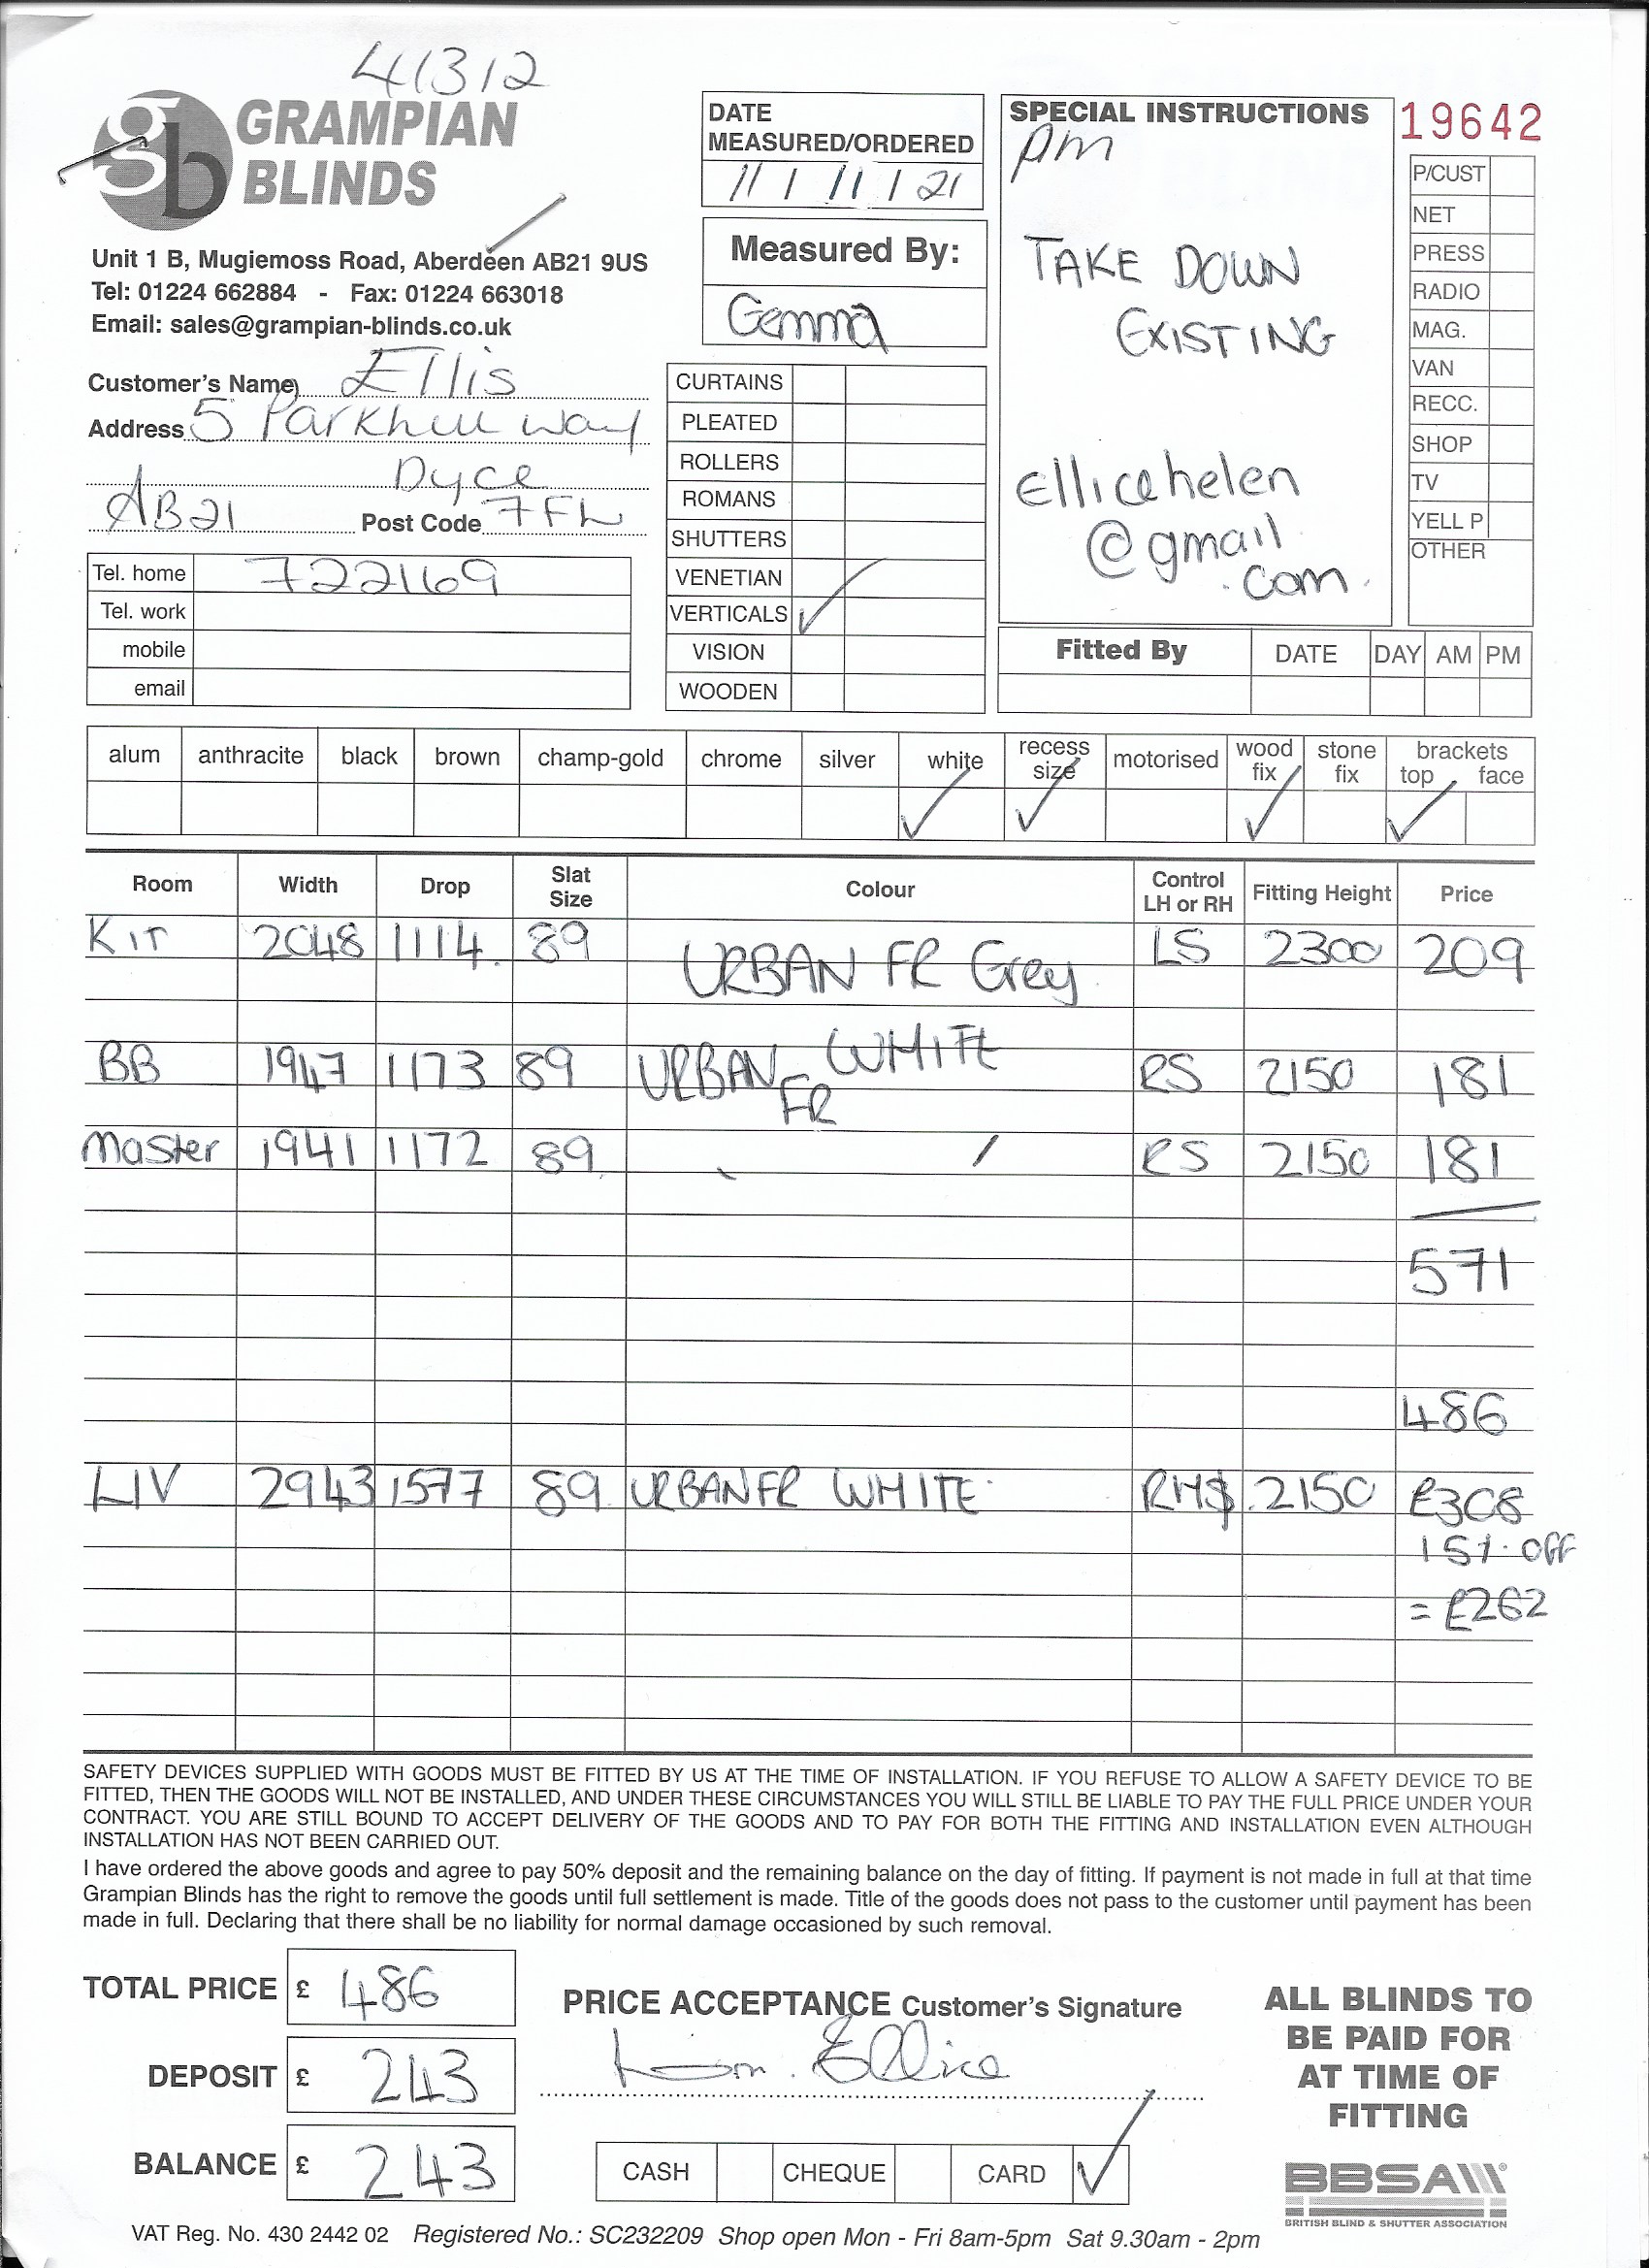 41312
GRAMPIAN
BLINDS
Unit 1 B, Mugiemoss Road, Aberdeen AB21 9US
Tel: 01224 662884 - Fax: 01224 663018
Email: sales@grampian-blinds.co.uk
Customer's Name Ellis
Address 5 Parkhill Way
Dyce
AB21 Post Code 7FL
Tel. home 722169
Tel. work
mobile
email
DATE
MEASURED/ORDERED
11 / 11 / 21
Measured By:
Gemma
CURTAINS
PLEATED
ROLLERS
ROMANS
SHUTTERS
VENETIAN
VERTICALS ✓
VISION
WOODEN
SPECIAL INSTRUCTIONS
pm
TAKE DOWN
EXISTING
ellicehelen
@gmail
.com
19642
P/CUST
NET
PRESS
RADIO
MAG.
VAN
RECC.
SHOP
TV
YELL P
OTHER
Fitted By DATE DAY AM PM
alum anthracite black brown champ-gold chrome silver white recess size motorised wood fix stone fix brackets top face
✓ ✓ ✓ ✓
Room Width Drop Slat Size Colour Control LH or RH Fitting Height Price
KIT 2048 1114 89 URBAN FR Grey LS 2300 209
BB 1947 1173 89 URBAN FR WHITE RS 2150 181
Master 1941 1172 89 RS 2150 181
571
486
LIV 2943 1577 89 URBAN FR WHITE RHS 2150 £308
15% OFF
= £262
SAFETY DEVICES SUPPLIED WITH GOODS MUST BE FITTED BY US AT THE TIME OF INSTALLATION. IF YOU REFUSE TO ALLOW A SAFETY DEVICE TO BE
FITTED, THEN THE GOODS WILL NOT BE INSTALLED, AND UNDER THESE CIRCUMSTANCES YOU WILL STILL BE LIABLE TO PAY THE FULL PRICE UNDER YOUR
CONTRACT. YOU ARE STILL BOUND TO ACCEPT DELIVERY OF THE GOODS AND TO PAY FOR BOTH THE FITTING AND INSTALLATION EVEN ALTHOUGH
INSTALLATION HAS NOT BEEN CARRIED OUT.
I have ordered the above goods and agree to pay 50% deposit and the remaining balance on the day of fitting. If payment is not made in full at that time
Grampian Blinds has the right to remove the goods until full settlement is made. Title of the goods does not pass to the customer until payment has been
made in full. Declaring that there shall be no liability for normal damage occasioned by such removal.
TOTAL PRICE £ 486
DEPOSIT £ 243
BALANCE £ 243
PRICE ACCEPTANCE Customer's Signature
Ellice
CASH CHEQUE CARD ✓
ALL BLINDS TO
BE PAID FOR
AT TIME OF
FITTING
BBSA
BRITISH BLIND & SHUTTER ASSOCIATION
VAT Reg. No. 430 2442 02 Registered No.: SC232209 Shop open Mon - Fri 8am-5pm Sat 9.30am - 2pm